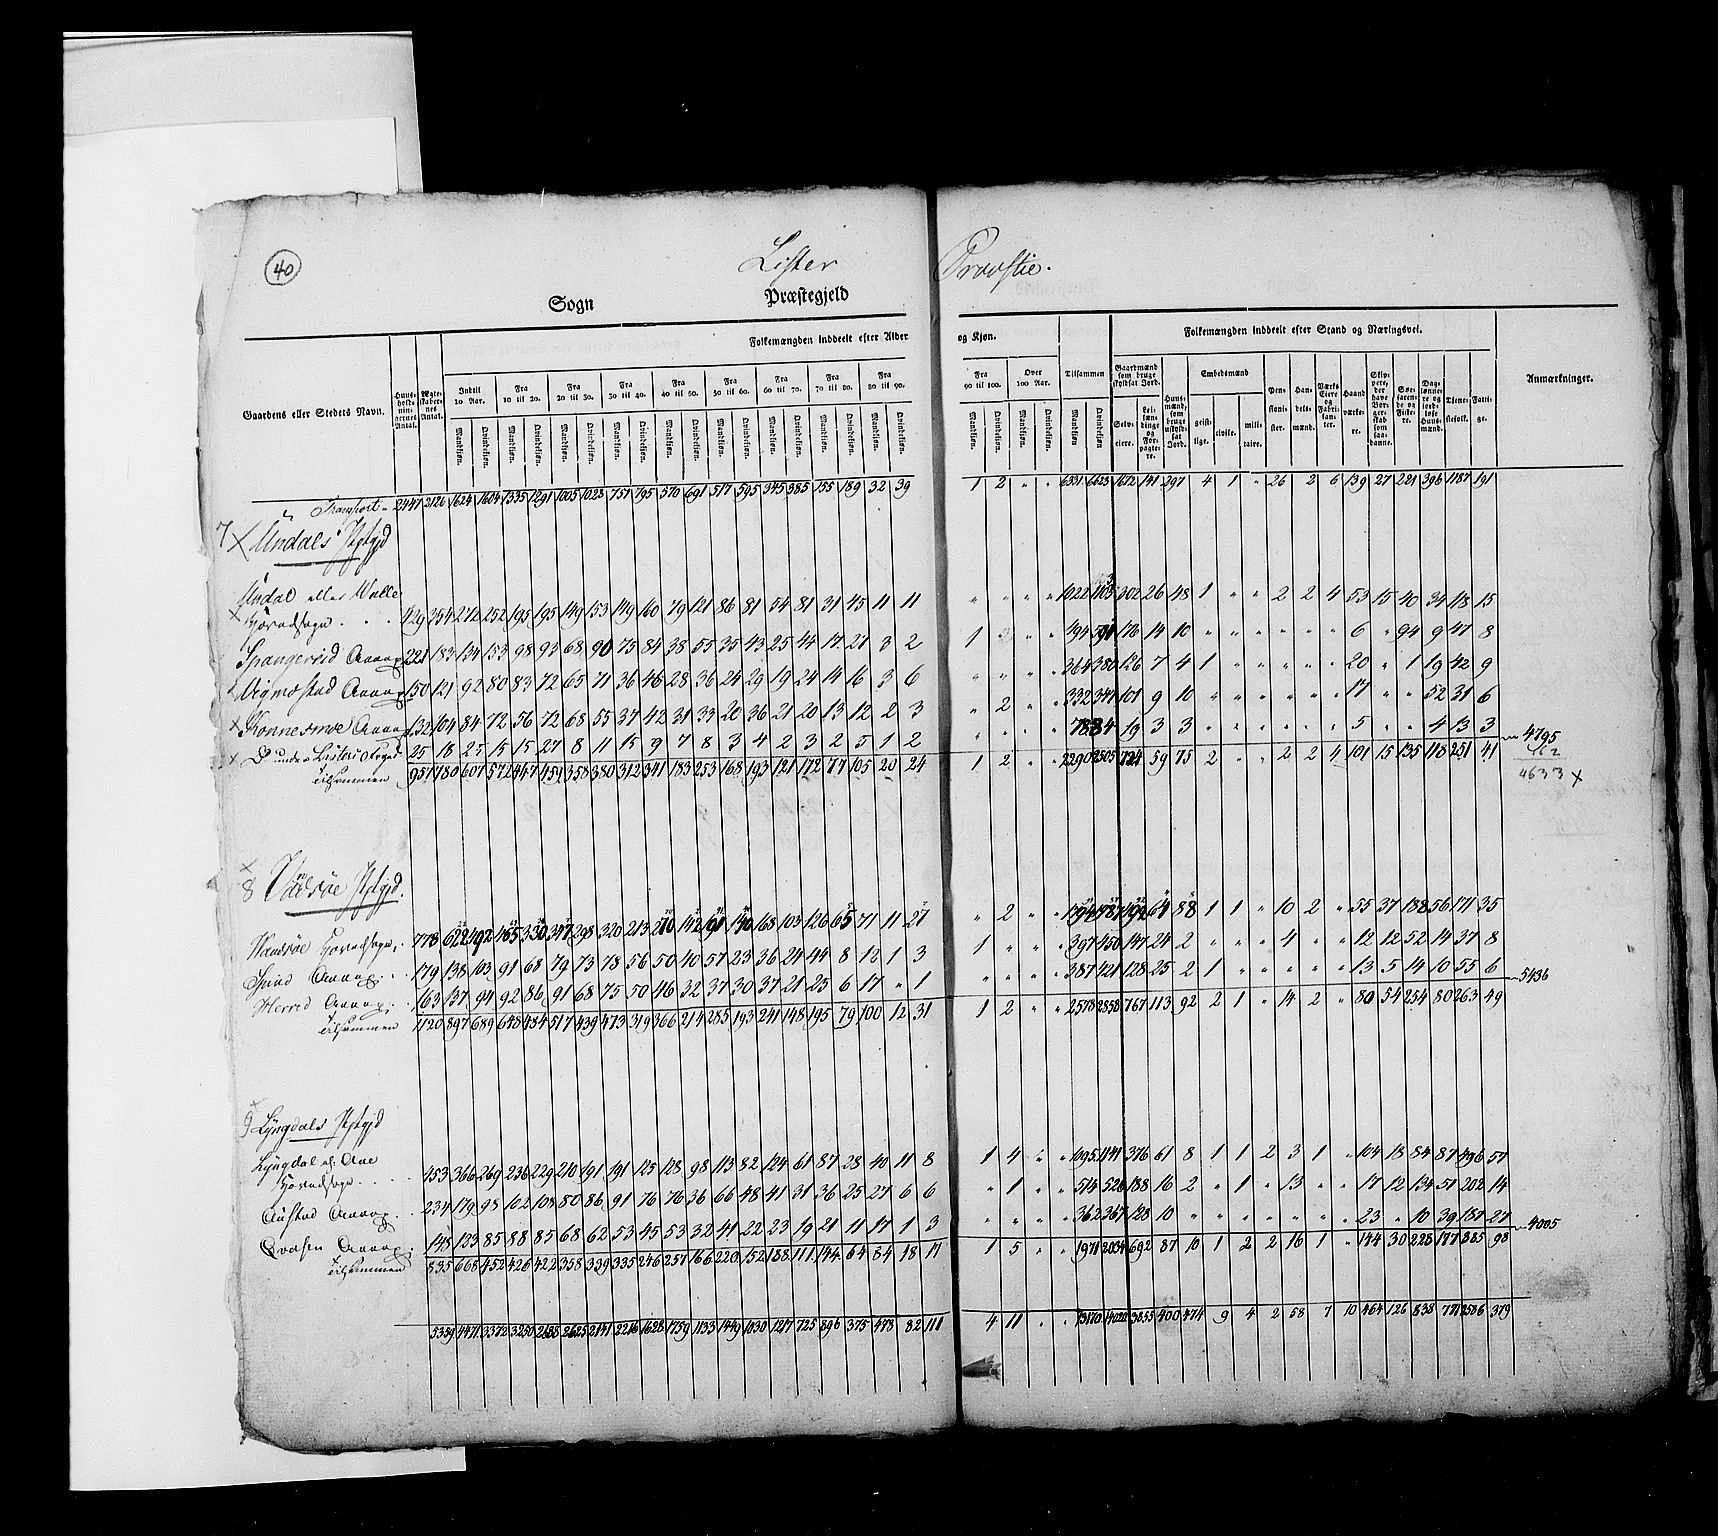 40
Lister Provstie.
Sogn Præstegjeld
Folkemængden inddeelt efter Alder og Kjøn.
Folkemængden inddeelt efter Stand og Næringsvei.
Gaardens eller Stedets Navn.
Huusholdningernes Antal.
Ægteskabernes Antal.
Indtil 10 Aar.
Fra 10 til 20.
Fra 20 til 30.
Fra 30 til 40.
Fra 40 til 50.
Fra 50 til 60.
Fra 60 til 70.
Fra 70 til 80.
Fra 80 til 90.
Fra 90 til 100.
Over 100 Aar.
Tilsammen
Embedsmænd
Anmærkninger.
Mandkjøn. Qvindekjøn.
Transport 2447 2126 1624 1604 1335 1291 1005 1023 757 795 570 691 517 595 345 385 155 189 32 39 1 2 " " 6331 6623 1672 141 297 4 1 " 26 2 6 139 27 221 396 1187 191
7 Undals Pstgjd
Undal eller Walle
Hovedsogn 429 354 272 252 195 195 149 153 149 160 79 121 86 81 54 81 31 45 11 11 " " " " 1022 1103 202 26 48 1 " " 2 2 4 53 15 40 34 118 15
Spangereid Annex 221 183 134 153 98 93 68 90 75 84 38 55 35 43 25 44 17 21 3 2 1 " " 494 176 14 10 " " " " " " 6 " 94 9 47 8
Vigmostad Annex 150 121 92 80 83 72 65 71 36 46 28 36 24 29 19 24 14 16 3 6 " " " " 364 380 126 7 4 1 " " " " " 20 " 1 19 42 9
Konnesmoe Annex 132 104 84 72 56 72 68 55 37 42 31 33 20 36 21 20 13 12 2 3 " 2 " " 332 347 101 9 10 " " " " " " 17 " " 52 31 6
D° under Listers Fogd 25 18 25 15 15 27 8 11 15 9 7 8 3 4 2 3 2 5 1 2 " " " " 78 84 19 3 3 " " " " " " 5 " " 4 13 3
Tilsammen 957 780 607 572 447 459 358 380 312 341 183 253 168 193 121 172 77 105 20 24 1 2 " " 2290 2505 724 59 75 2 " " 2 2 4 101 15 135 118 251 41
4795
162
4633 x
8 Vandsøe Pstgjd.
Wandsøe Hovedsogn 778 622 492 465 330 347 298 320 213 270 142 191 140 168 103 126 65 71 11 27 " 2 " " 1794 1987 492 64 88 1 1 " 10 2 " 55 37 188 56 171 35
Spind Annex 179 138 103 91 68 79 73 78 56 50 40 57 23 36 24 44 8 12 1 3 1 " " " 397 450 147 24 2 " " " 4 " " 12 12 52 14 37 8
Herred Annex 163 137 94 92 86 91 68 75 50 46 32 37 30 37 21 25 6 17 " 1 " " " " 387 421 128 25 2 1 " " " " " 13 5 14 10 55 6
Tilsammen 1120 897 689 648 484 517 439 473 319 366 214 285 193 241 148 195 79 100 12 31 1 2 " " 2578 2858 767 113 92 2 1 " 14 2 " 80 54 254 80 263 49
5436
9 Lyngdals Pstgjd
Lyngdal el. Aae
Hovedsogn 453 366 269 236 229 210 191 191 125 128 98 113 82 124 61 87 28 40 11 8 1 4 " " 1095 1141 376 61 8 1 1 2 3 1 " 104 18 84 87 496 57
Austad Annex 234 179 98 102 108 80 86 91 76 76 36 66 48 41 31 36 25 27 6 6 " 1 " " 514 526 188 16 2 " 1 " 13 " " 17 12 134 51 202 14
Qvaasen Annex 148 123 85 88 85 68 62 53 45 53 32 41 22 23 19 21 11 17 1 3 " " " " 362 367 128 10 " " " " " " " 23 " 10 39 187 27
Tilsammen 835 668 452 426 422 358 339 335 246 257 166 220 152 188 111 144 64 84 18 17 1 5 " " 1971 2034 692 87 10 1 2 2 16 1 " 144 30 228 177 885 98
4005
5359 4471 3372 3250 2688 2625 2141 2216 1628 1759 1133 1449 1030 1217 725 896 375 478 82 111 4 11 " " 13170 14020 3855 400 474 9 4 2 58 7 10 464 126 838 771 2586 379